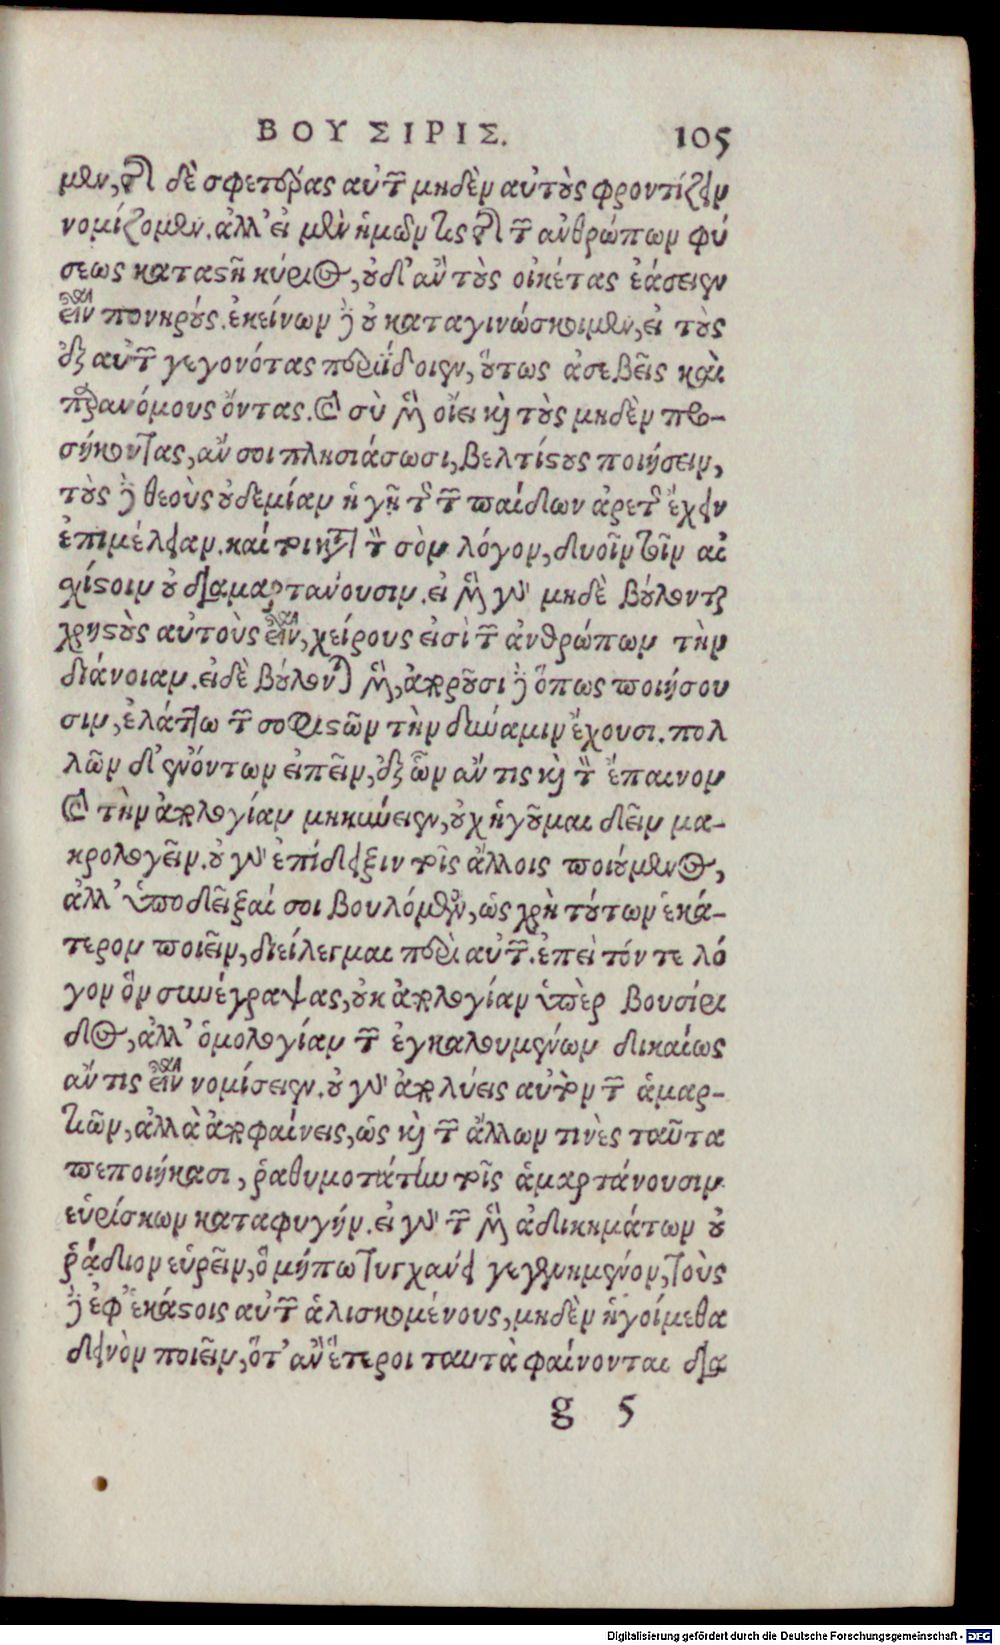 ΒΟΥΣΙΡΙΣ. 105
μεν, τῆς δὲ σφετέρας αὐτῶν μηδὲν αὐτοὺς φροντίζειν
νομίζομεν. ἀλλ' εἰ μὲν ἡμῶν τις τῆς τῶν ἀνθρώπων φύ
σεως καταστῇ κύριος, οὐδ' ἂν τοὺς οἰκέτας ἐάσειεν
εἶναι πονηρούς. ἐκείνων δὲ οὐ καταγινώσκοιμεν, εἰ τοὺς
ἐξ αὐτῶν γεγονότας περιΐδοιεν, οὕτως ἀσεβεῖς καὶ
παρανόμους ὄντας. καὶ σὺ μὲν οἴει καὶ τοὺς μηδὲν προ-
σήκοντας, ἄν σοι πλησιάσωσι, βελτίστους ποιήσειν,
τοὺς δὲ θεοὺς οὐδεμίαν ἡγῇ τῆς τῶν παίδων ἀρετῆς ἔχειν
ἐπιμέλειαν. καίτοι κατὰ τὸν σὸν λόγον, δυοῖν τοῖν αἰ
σχίστοιν οὐ διαμαρτάνουσιν. εἰ μὲν γὰρ μηδὲ βούλονται
χρηστοὺς αὐτοὺς εἶναι, χείρους εἰσὶ τῶν ἀνθρώπων τὴν
διάνοιαν. εἰ δὲ βούλονται μὲν, ἀποροῦσι δὲ ὅπως ποιήσου
σιν, ἐλάττω τῶν σοφιστῶν τὴν δύναμιν ἔχουσι. πολ
λῶν δ' ἐνόντων εἰπεῖν, ἐξ ὧν ἄν τις καὶ τὸν ἔπαινον
καὶ τὴν ἀπολογίαν μηκύνειεν, οὐχ ἡγοῦμαι δεῖν μα-
κρολογεῖν. οὐ γὰρ ἐπίδειξιν τοῖς ἄλλοις ποιούμενος,
ἀλλ' ὑποδεῖξαί σοι βουλόμενος, ὡς χρὴ τούτων ἑκά-
τερον ποιεῖν, διείλεγμαι περὶ αὐτῶν. ἐπεὶ τόν τε λό
γον ὃν συνέγραψας, οὐκ ἀπολογίαν ὑπὲρ Βουσίρι
δος, ἀλλ' ὁμολογίαν τῶν ἐγκαλουμένων δικαίως
ἄν τις εἶναι νομίσειεν. οὐ γὰρ ἀπολύεις αὐτὸν τῶν ἁμαρ-
τιῶν, ἀλλὰ ἀποφαίνεις, ὡς καὶ τῶν ἄλλων τινὲς ταῦτα
πεποιήκασι, ῥαθυμοτάτην τοῖς ἁμαρτάνουσιν
εὑρίσκων καταφυγήν. εἰ γὰρ τῶν μὲν ἀδικημάτων οὐ
ῥᾴδιον εὑρεῖν, ὃ μήπω τυγχάνει γεγενημένον, τοὺς
δὲ ἐφ' ἑκάστοις αὐτῶν ἁλισκομένους, μηδὲν ἡγοίμεθα
δεινὸν ποιεῖν, ὅτ' ἂν ἕτεροι ταυτὰ φαίνονται δια
g 5
Digitalisierung gefördert durch die Deutsche Forschungsgemeinschaft - DFG